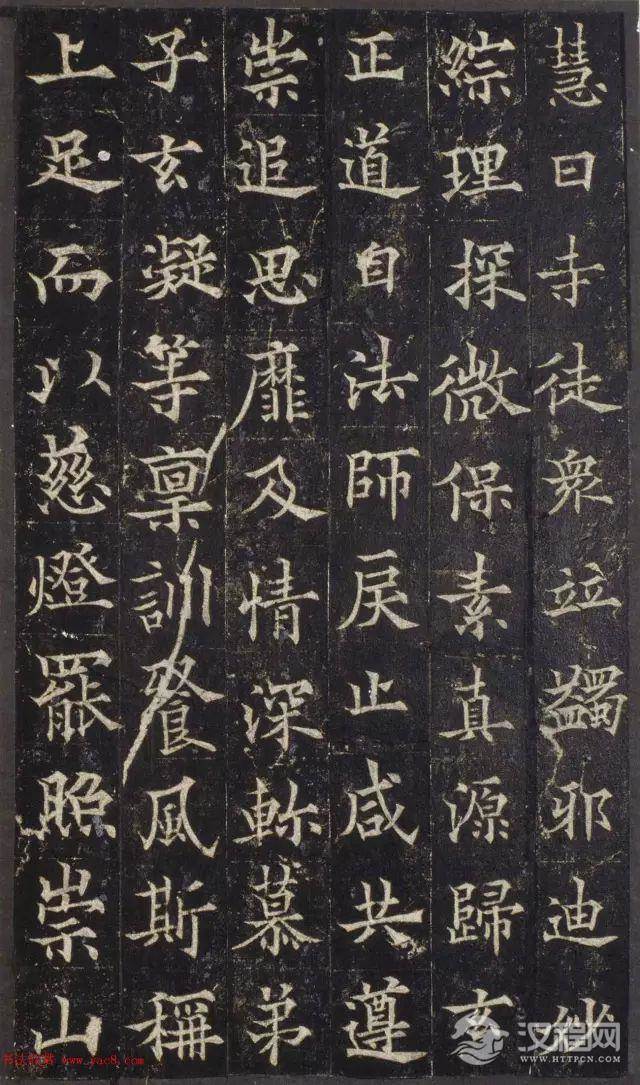 慧日寺徒衆竝蠲邪迪妙
綜理探微保素真源歸玄
正道自法師戾止咸共遵
崇追思靡及情深軫慕弟
子玄凝等稟訓餐風斯稱
上足而以慈燈罷照崇山
书法欣赏 www.yac8.com
汉程网
WWW.HTTPCN.COM